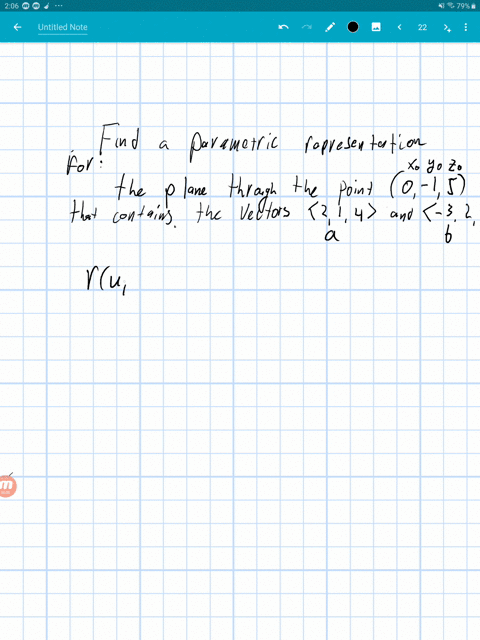 2:06
79%
Untitled Note
22
Find a parametric representation
for:
x₀ y₀ z₀
the plane through the point (0, -1, 5)
that contains the vectors <2, 1, 4> and <-3, 2,
a b
r(u,